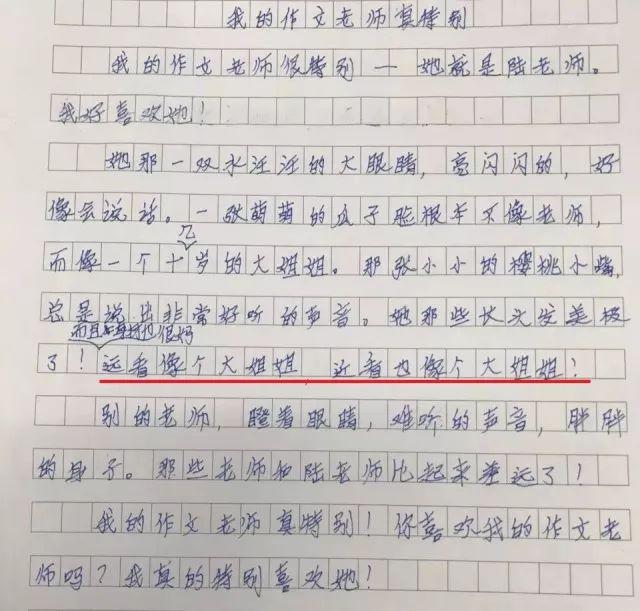 我的作文老师真特别
我的作文老师很特别 — 她就是陆老师。
我好喜欢她！
她那一双水汪汪的大眼睛，亮闪闪的，好
像会说话。一张萌萌的瓜子脸根本不像老师，
几
而像一个十岁的大姐姐。那张小小的樱桃小嘴，
总是说出非常好听的声音。她那些长头发美极
而且身材也很好
了！远看像个大姐姐，近看也像个大姐姐！
别的老师，瞪着眼睛，难听的声音，胖胖
的身子。那些老师和陆老师比起来差远了！
我的作文老师真特别！你喜欢我的作文老
师吗？我真的特别喜欢她！